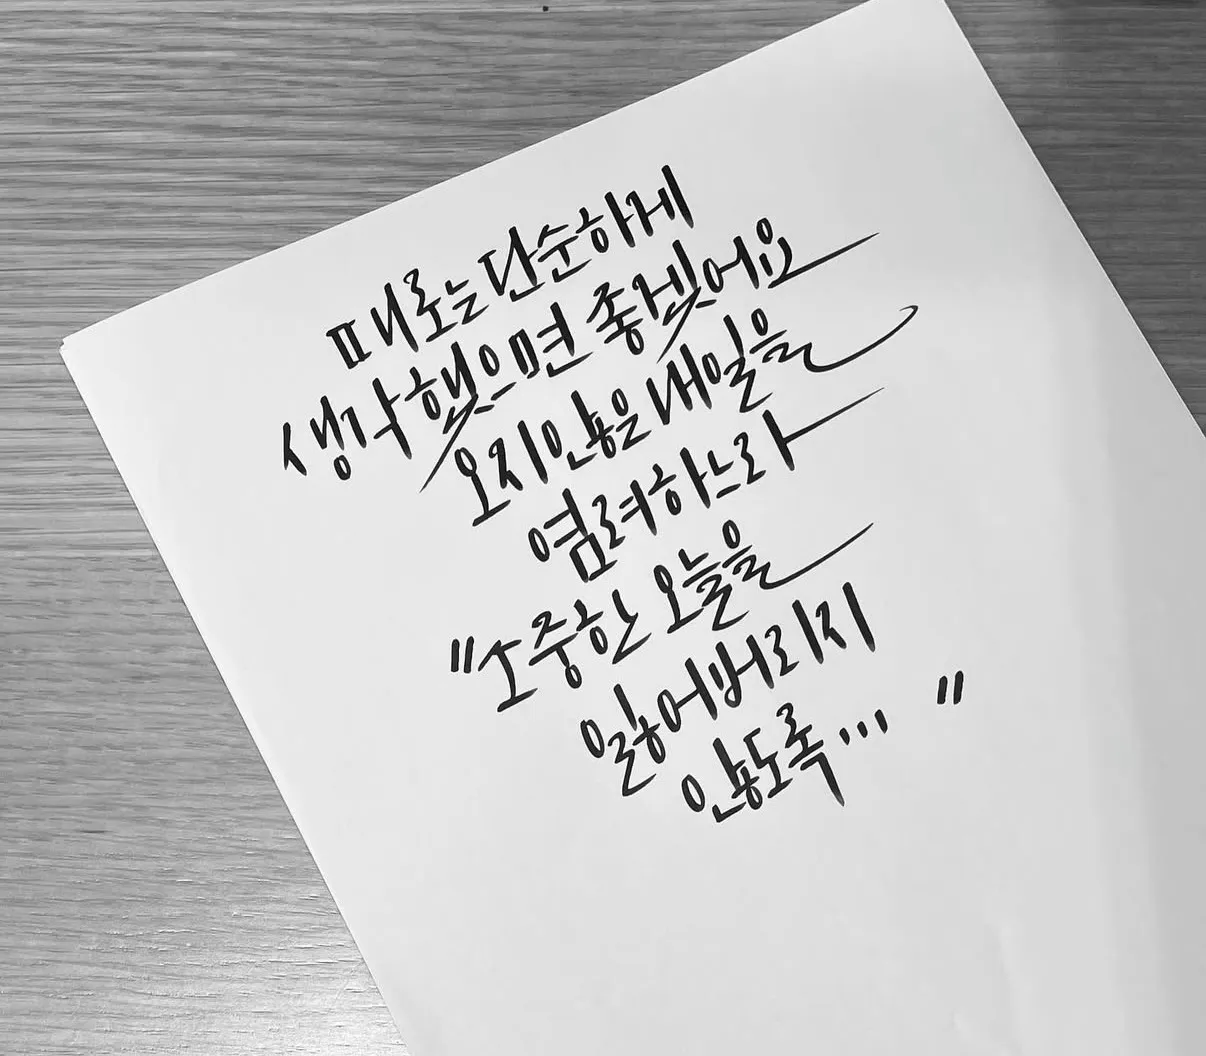 때로는 단순하게
생각했으면 좋겠어요
오지 않은 내일을
염려하느라
"소중한 오늘을
잃어버리지
않도록... "